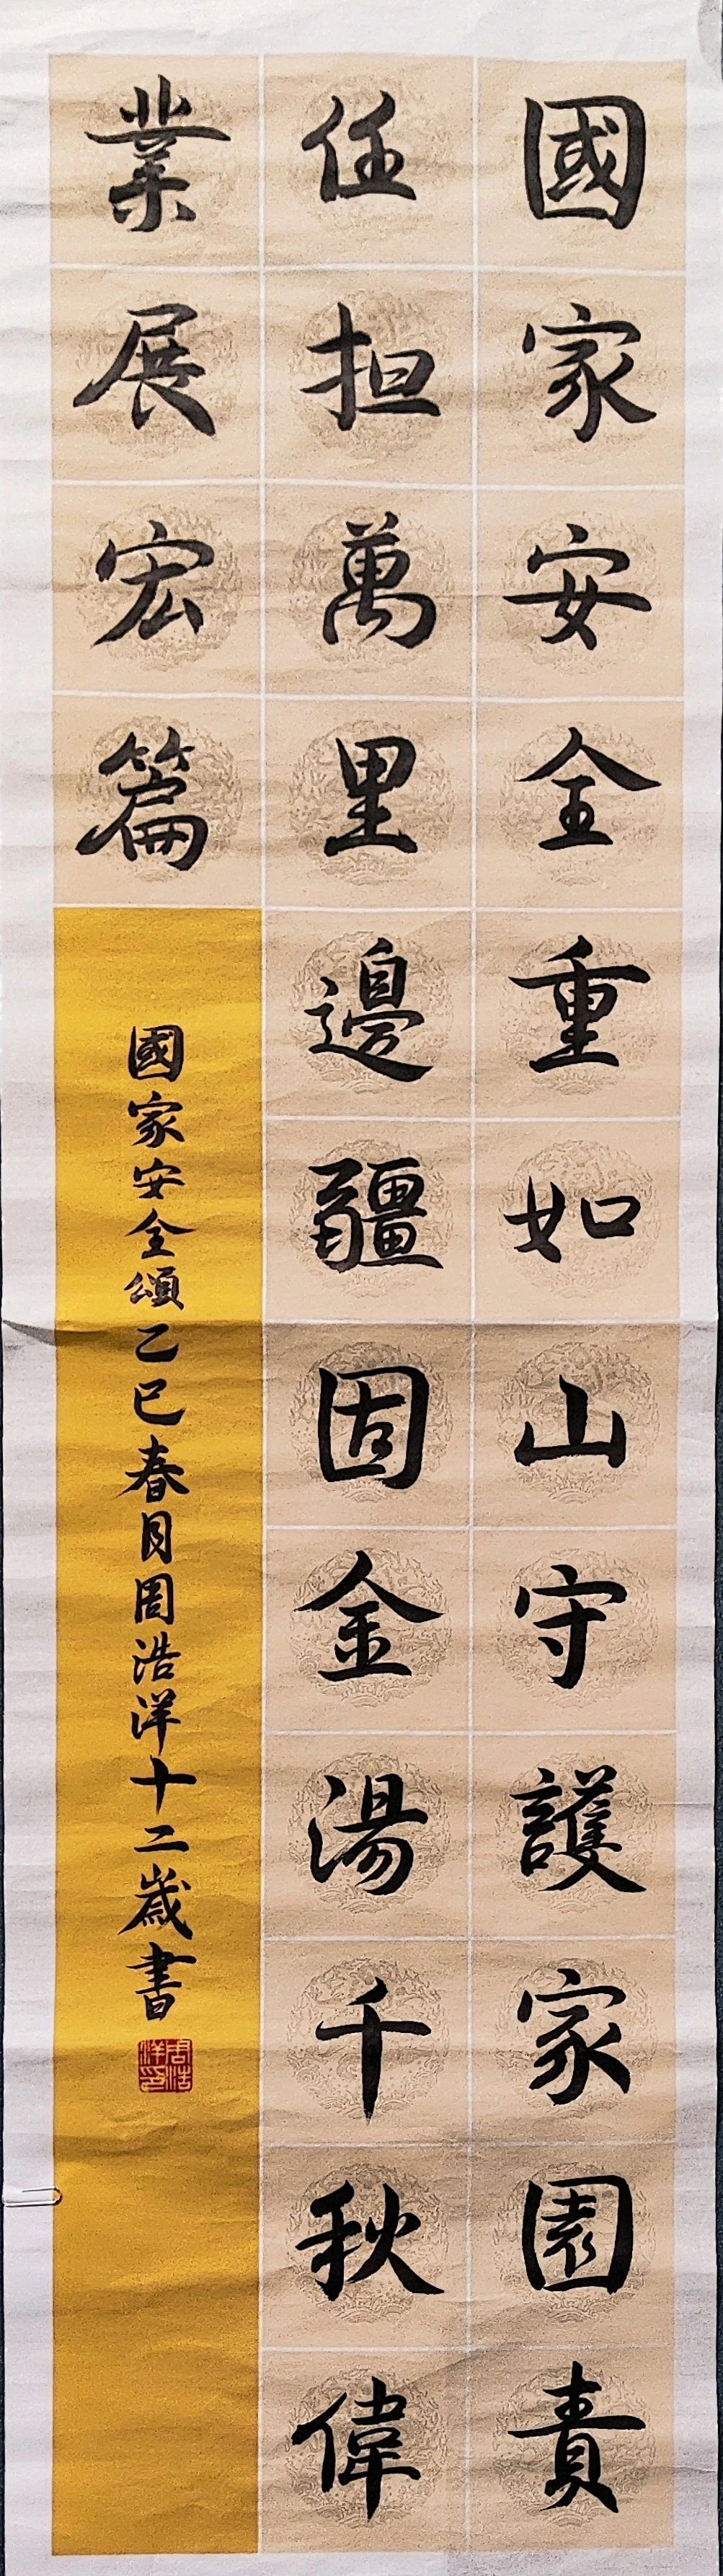 國家安全重如山守護家園責
任担萬里邊疆固金湯千秋偉
業展宏篇
國家安全頌乙巳春月周浩洋十二歲書
周浩洋印